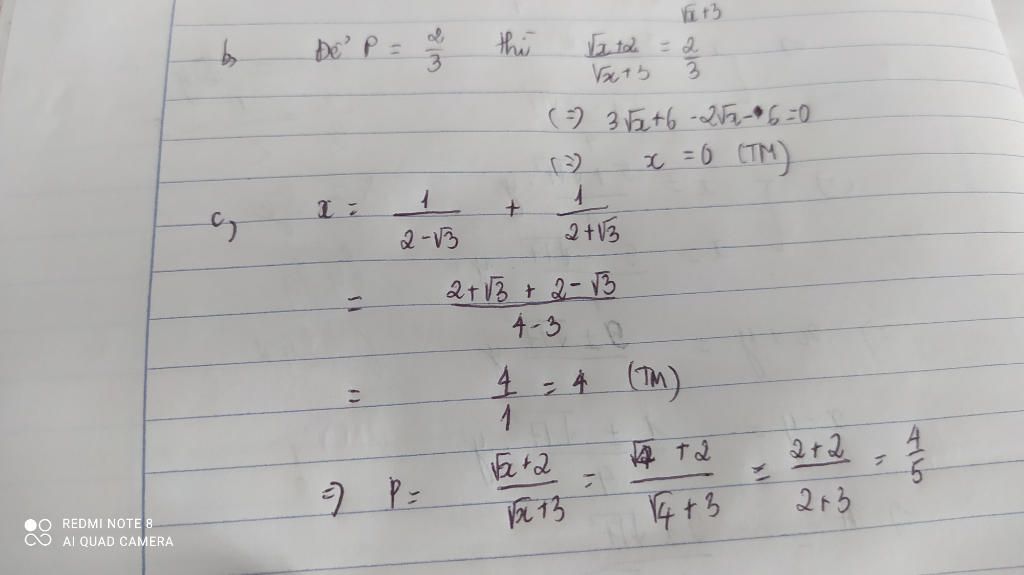 √x+3
b, Để P = 2/3 thì (√x+2)/(√x+3) = 2/3
(=) 3√x+6 -2√x-6=0
(=) x = 0 (TM)
c, x = 1/(2-√3) + 1/(2+√3)
= (2+√3 + 2-√3)/(4-3)
= 4/1 = 4 (TM)
=) P = (√x+2)/(√x+3) = (√4 +2)/(√4+3) = (2+2)/(2+3) = 4/5
REDMI NOTE 8
AI QUAD CAMERA